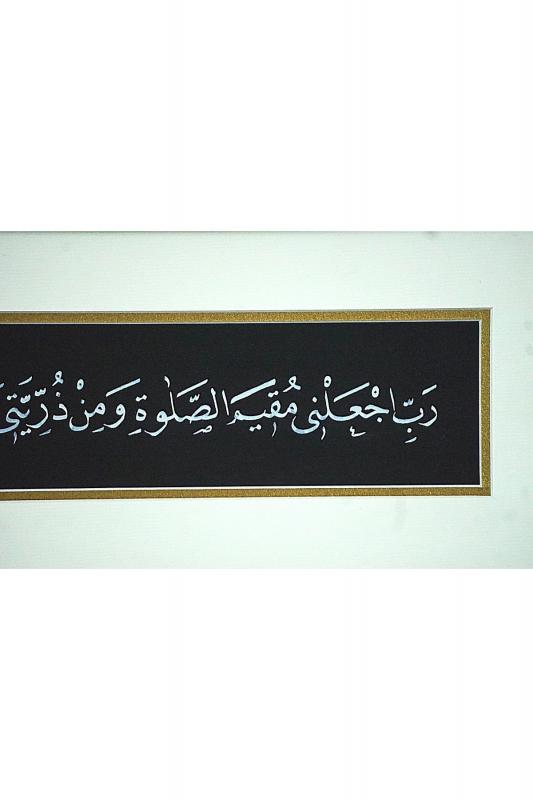 رَبِّ اجْعَلْنٖى مُقٖيمَ الصَّلٰوةِ وَمِنْ ذُرِّيَّتٖى